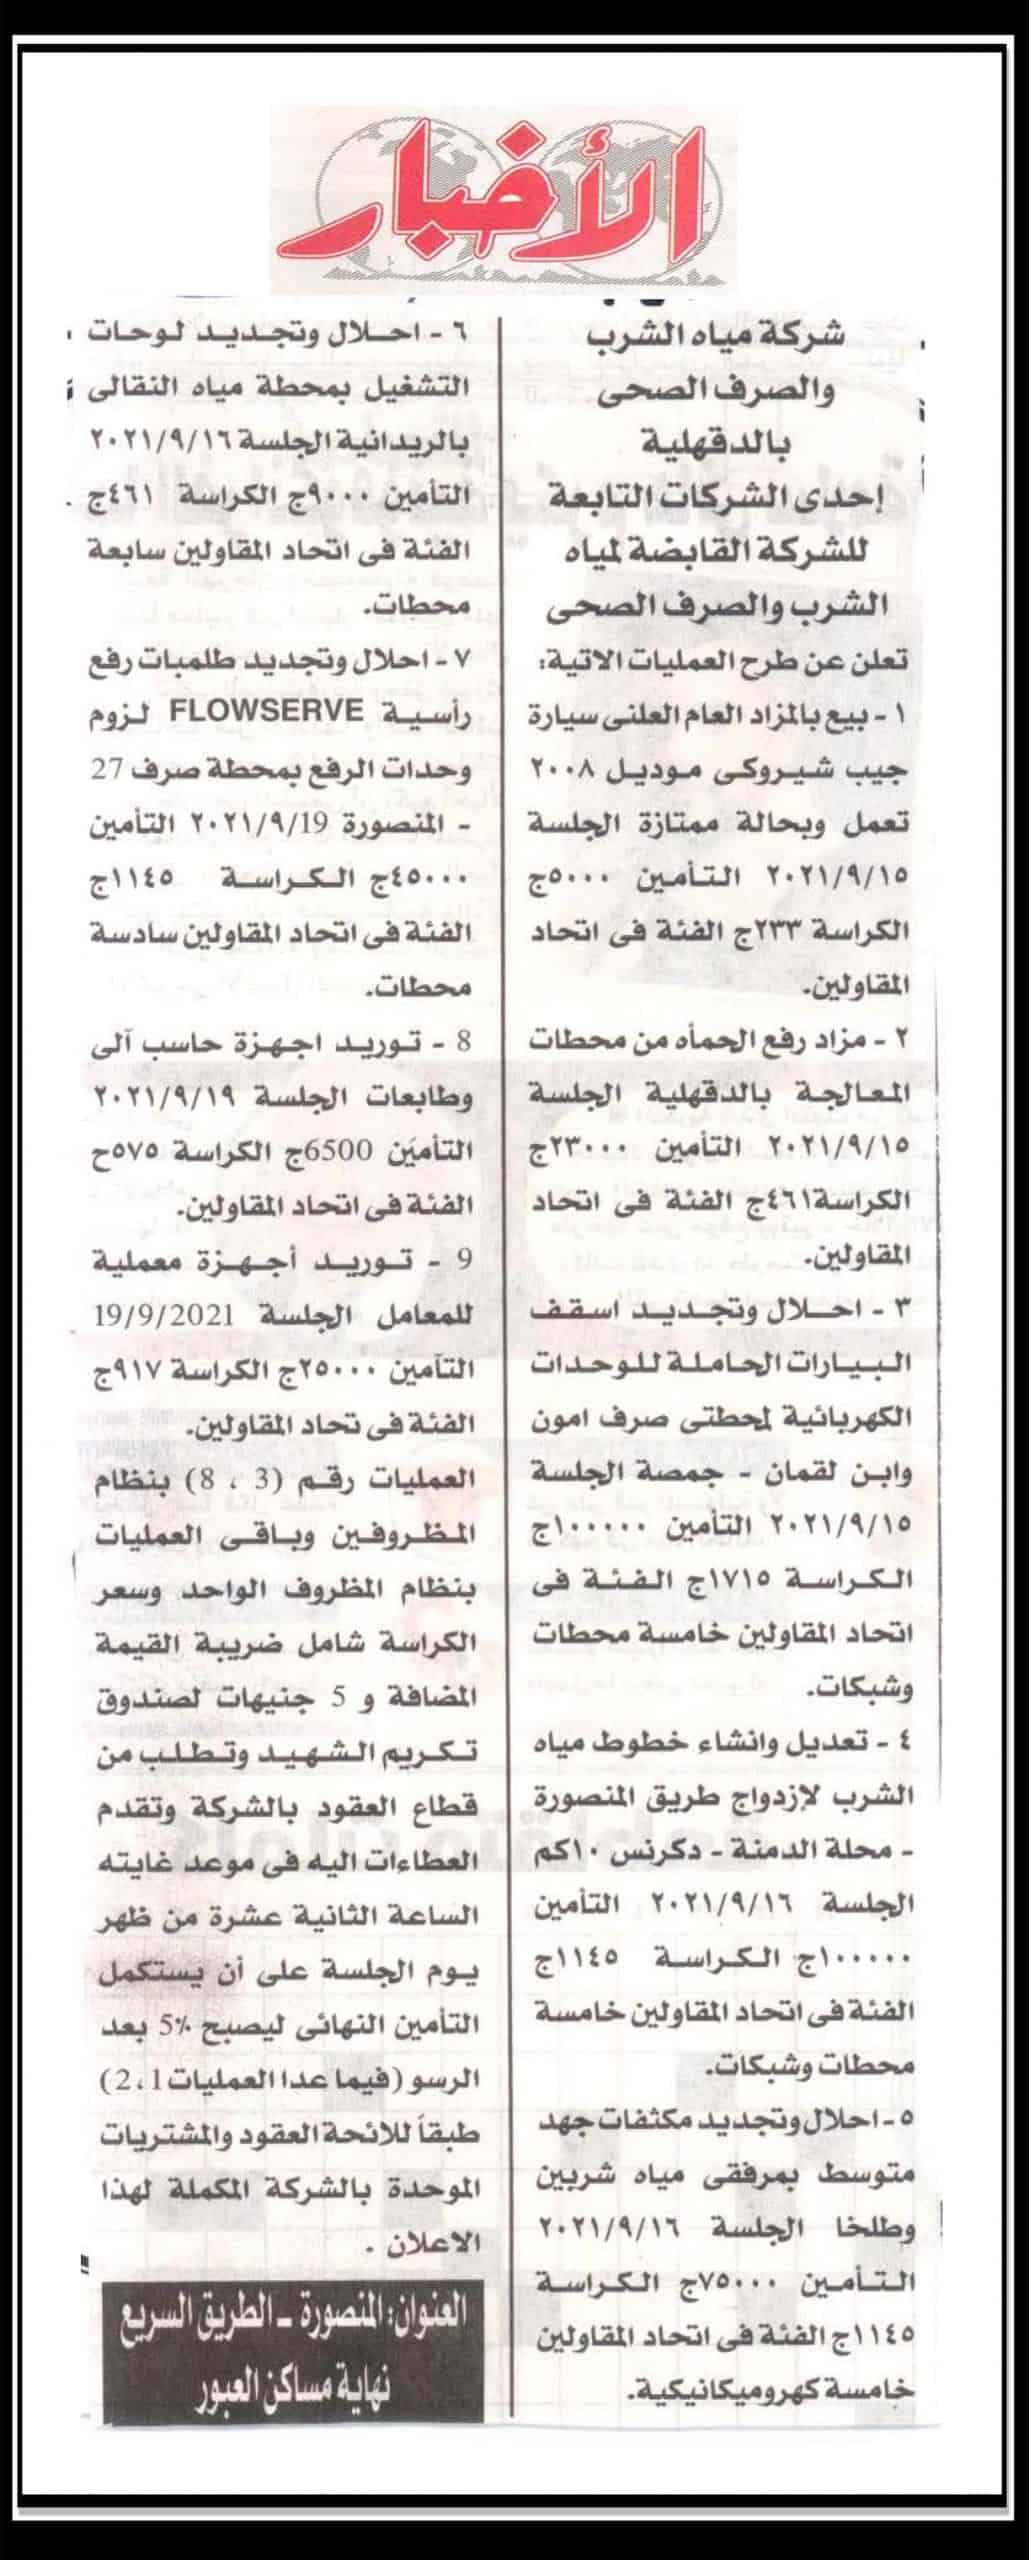 الأخبار
شركة مياه الشرب
والصرف الصحى
بالدقهلية
إحدى الشركات التابعة
للشركة القابضة لمياه
الشرب والصرف الصحى
تعلن عن طرح العمليات الاتية:
١ - بيع بالمزاد العام العلنى سيارة
جيب شيروكى موديل ٢٠٠٨
تعمل وبحالة ممتازة الجلسة
٢٠٢١/٩/١٥ التأمين ٥٠٠٠ج
الكراسة ٢٣٣ج الفئة فى اتحاد
المقاولين.
٢ - مزاد رفع الحمأه من محطات
المعالجة بالدقهلية الجلسة
٢٠٢١/٩/١٥ التأمين ٢٣٠٠٠ج
الكراسة٤٦١ج الفئة فى اتحاد
المقاولين.
٣ - احلال وتجديد اسقف
البيارات الحاملة للوحدات
الكهربائية لمحطتى صرف امون
وابن لقمان - جمصة الجلسة
٢٠٢١/٩/١٥ التأمين ١٠٠٠٠٠ج
الكراسة ١٧١٥ج الفئة فى
اتحاد المقاولين خامسة محطات
وشبكات.
٤ - تعديل وانشاء خطوط مياه
الشرب لإزدواج طريق المنصورة
- محلة الدمنة - دكرنس ١٠كم
الجلسة ٢٠٢١/٩/١٦ التأمين
١٠٠٠٠٠ج الكراسة ١١٤٥ج
الفئة فى اتحاد المقاولين خامسة
محطات وشبكات.
٥ - احلال وتجديد مكثفات جهد
متوسط بمرفقى مياه شربين
وطلخا الجلسة ٢٠٢١/٩/١٦
التأمين ٧٥٠٠٠ج الكراسة
١١٤٥ج الفئة فى اتحاد المقاولين
خامسة كهروميكانيكية.
٦ - احلال وتجديد لوحات
التشغيل بمحطة مياه النقالى
بالريدانية الجلسة ٢٠٢١/٩/١٦
التأمين ٩٠٠٠ج الكراسة ٤٦١ج
الفئة فى اتحاد المقاولين سابعة
محطات.
٧ - احلال وتجديد طلمبات رفع
رأسية FLOWSERVE لزوم
وحدات الرفع بمحطة صرف 27
- المنصورة 19/٢٠٢١/٩ التأمين
٤٥٠٠٠ج الكراسة ١١٤٥ج
الفئة فى اتحاد المقاولين سادسة
محطات.
8 - توريد اجهزة حاسب آلى
وطابعات الجلسة ٢٠٢١/٩/١٩
التأمين 6500ج الكراسة ٥٧٥ح
الفئة فى اتحاد المقاولين.
9 - توريد أجهزة معملية
للمعامل الجلسة 19/9/2021
التآمين ٢٥٠٠٠ج الكراسة ٩١٧ج
الفئة فى تحاد المقاولين.
العمليات رقم (3 ، 8) بنظام
المظروفين وباقى العمليات
بنظام المظروف الواحد وسعر
الكراسة شامل ضريبة القيمة
المضافة و 5 جنيهات لصندوق
تكريم الشهيد وتطلب من
قطاع العقود بالشركة وتقدم
العطاءات اليه فى موعد غايته
الساعة الثانية عشرة من ظهر
يوم الجلسة على أن يستكمل
التأمين النهائى ليصبح 5% بعد
الرسو (فيما عدا العمليات1،2)
طبقاً للائحة العقود والمشتريات
الموحدة بالشركة المكملة لهذا
الاعلان .
العنوان: المنصورة - الطريق السريع
نهاية مساكن العبور